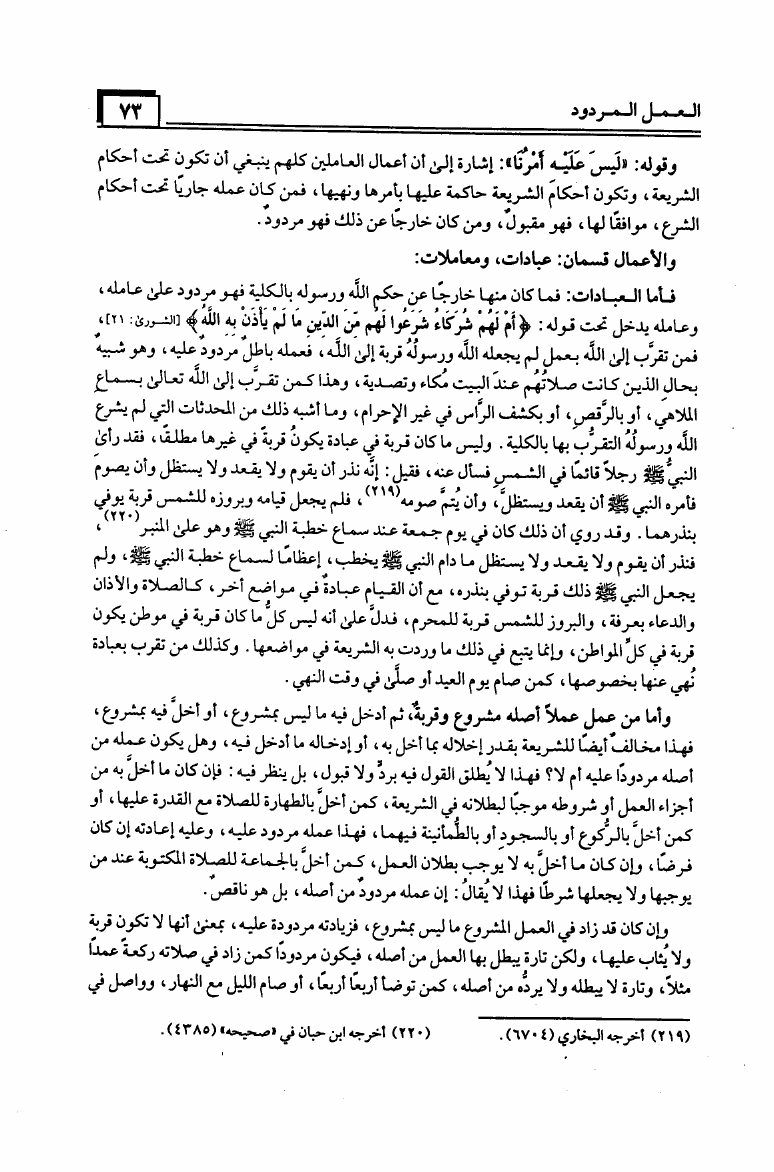 العمل المردود
٧٣
وقوله: «لَيسَ عَلَيْه أَمْرُنَا»: إشارة إلىٰ أن أعمال العاملين كلهم ينبغي أن تكون تحت أحكام
الشريعة، وتكون أحكامَ الشريعة حاكمة عليها بأمرها ونهيها، فمن كان عمله جاريًا تحت أحكام
الشرع، موافقًا لها، فهو مقبولٌ، ومن كان خارجًا عن ذلك فهو مردودٌ.
والأعمال قسمان: عبادات، ومعاملات:
فأما العبادات: فما كان منها خارجًا عن حكم الله ورسوله بالكلية فهو مردود علىٰ عامله،
وعامله يدخل تحت قوله: ﴿أَمْ لَهُمْ شُرَكَاءُ شَرَعُوا لَهُم مِّنَ الدِّينِ مَا لَمْ يَأْذَنْ بِهِ اللَّهُ﴾ [الشورىٰ: ٢١]،
فمن تقرَّب إلىٰ الله بعملٍ لم يجعله الله ورسولُهُ قربة إلىٰ الله، فعمله باطلٌ مردودٌ عليه، وهو شبيهٌ
بحالِ الذين كانت صلاتُهُم عندَ البيت مُكاء وتصدية، وهذا كمن تقرَّب إلىٰ الله تعالىٰ بسماعِ
الملاهي، أو بالرَّقصِ، أو بكشف الرَّأس في غير الإحرام، وما أشبه ذلك من المحدثات التي لم يشرع
الله ورسولُهُ التقرُّب بها بالكلية. وليس ما كان قربة في عبادة يكونُ قربةً في غيرها مطلقًا، فقد رأىٰ
النبيُّ ﷺ رجلاً قائمًا في الشمسِ فسأل عنه، فقيل: إنَّه نذر أن يقوم ولا يقعد ولا يستظل وأن يصومَ
فأمره النبي ﷺ أن يقعد ويستظلَّ، وأن يُتمَّ صومه(٢١٩)، فلم يجعل قيامه وبروزه للشمس قربة يوفي
بنذرهما. وقد روي أن ذلك كان في يوم جمعة عند سماع خطبة النبي ﷺ وهو علىٰ المنبر(٢٢٠)،
فنذر أن يقوم ولا يقعد ولا يستظل ما دام النبي ﷺ يخطب، إعظامًا لسماع خطبة النبي ﷺ، ولم
يجعل النبي ﷺ ذلك قربة توفي بنذره، مع أن القيام عبادةٌ في مواضع أخر، كالصلاة والأذان
والدعاء بعرفة، والبروز للشمس قربة للمحرم، فدلَّ علىٰ أنه ليس كلُّ ما كان قربة في موطن يكون
قربة في كلِّ المواطن، وإنما يتبع في ذلك ما وردت به الشريعة في مواضعها. وكذلك من تقرب بعبادة
نُهي عنها بخصوصها، كمن صام يوم العيد أو صلَّىٰ في وقت النهي.
وأما من عمل عملاً أصله مشروع وقربةٌ، ثم أدخل فيه ما ليس بمشروع، أو أخلَّ فيه بمشروع،
فهذا مخالفٌ أيضًا للشريعة بقدر إخلاله بما أخل به، أو إدخاله ما أدخل فيه، وهل يكون عمله من
أصله مردودًا عليه أم لا؟ فهذا لا يُطلق القول فيه بردٍّ ولا قبول، بل ينظر فيه: فإن كان ما أخلَّ به من
أجزاء العمل أو شروطه موجبًا لبطلانه في الشريعة، كمن أخلَّ بالطهارة للصلاة مع القدرة عليها، أو
كمن أخلَّ بالرُّكوع أو بالسجودِ أو بالطُّمأنينة فيهما، فهذا عمله مردود عليه، وعليه إعادته إن كان
فرضًا، وإن كان ما أخلَّ به لا يوجب بطلان العمل، كمن أخلَّ بالجماعة للصلاة المكتوبة عند من
يوجبها ولا يجعلها شرطًا فهذا لا يُقالُ: إن عمله مردودٌ من أصله، بل هو ناقصٌ.
وإن كان قد زاد في العمل المشروع ما ليس بمشروع، فزيادته مردودة عليه، بمعنىٰ أنها لا تكون قربة
ولا يُثاب عليها، ولكن تارة يبطل بها العمل من أصله، فيكون مردودًا كمن زاد في صلاته ركعةً عمدًا
مثلاً، وتارة لا يبطله ولا يردُّه من أصله، كمن توضأ أربعًا أربعًا، أو صام الليل مع النهار، وواصل في
(٢١٩) أخرجه البخاري (٦٧٠٤).
(٢٢٠) أخرجه ابن حبان في «صحيحه» (٤٣٨٥).